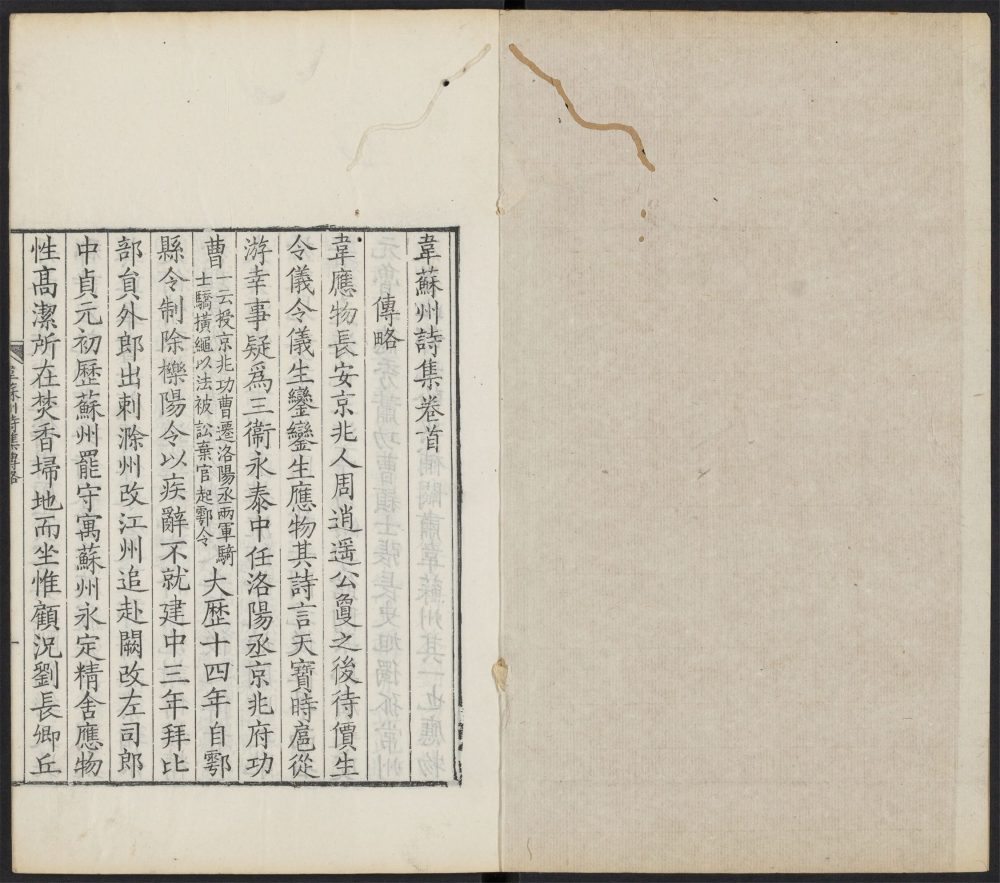 韋蘇州詩集卷首
傳略
韋應物長安京兆人周逍遥公敻之後待價生
令儀令儀生鑾鑾生應物其詩言天寶時扈從
游幸事疑爲三衞永泰中任洛陽丞京兆府功
曹一云授京兆功曹遷洛陽丞兩軍騎士驕橫繩以法被訟棄官起鄠令大歷十四年自鄠
縣令制除櫟陽令以疾辭不就建中三年拜比
部貟外郎出刺滁州改江州追赴闕改左司郎
中貞元初歷蘇州罷守寓蘇州永定精舍應物
性高潔所在焚香埽地而坐惟顧況劉長卿丘
韋蘇州詩集傳略
一